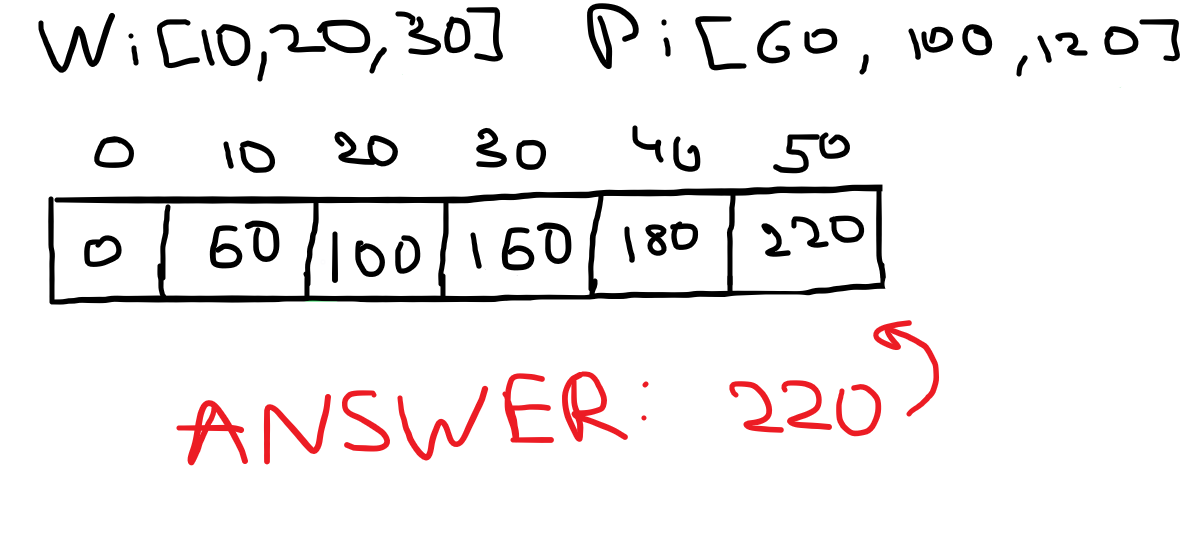 Wi[10,20,30] Pi[60, 100,120]
0 10 20 30 40 50
0 60 100 160 180 220
ANSWER: 220